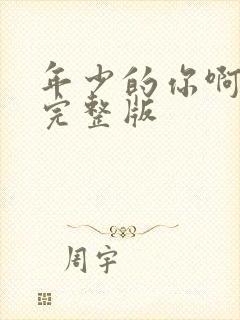 年少的你啊
完整版
周宇